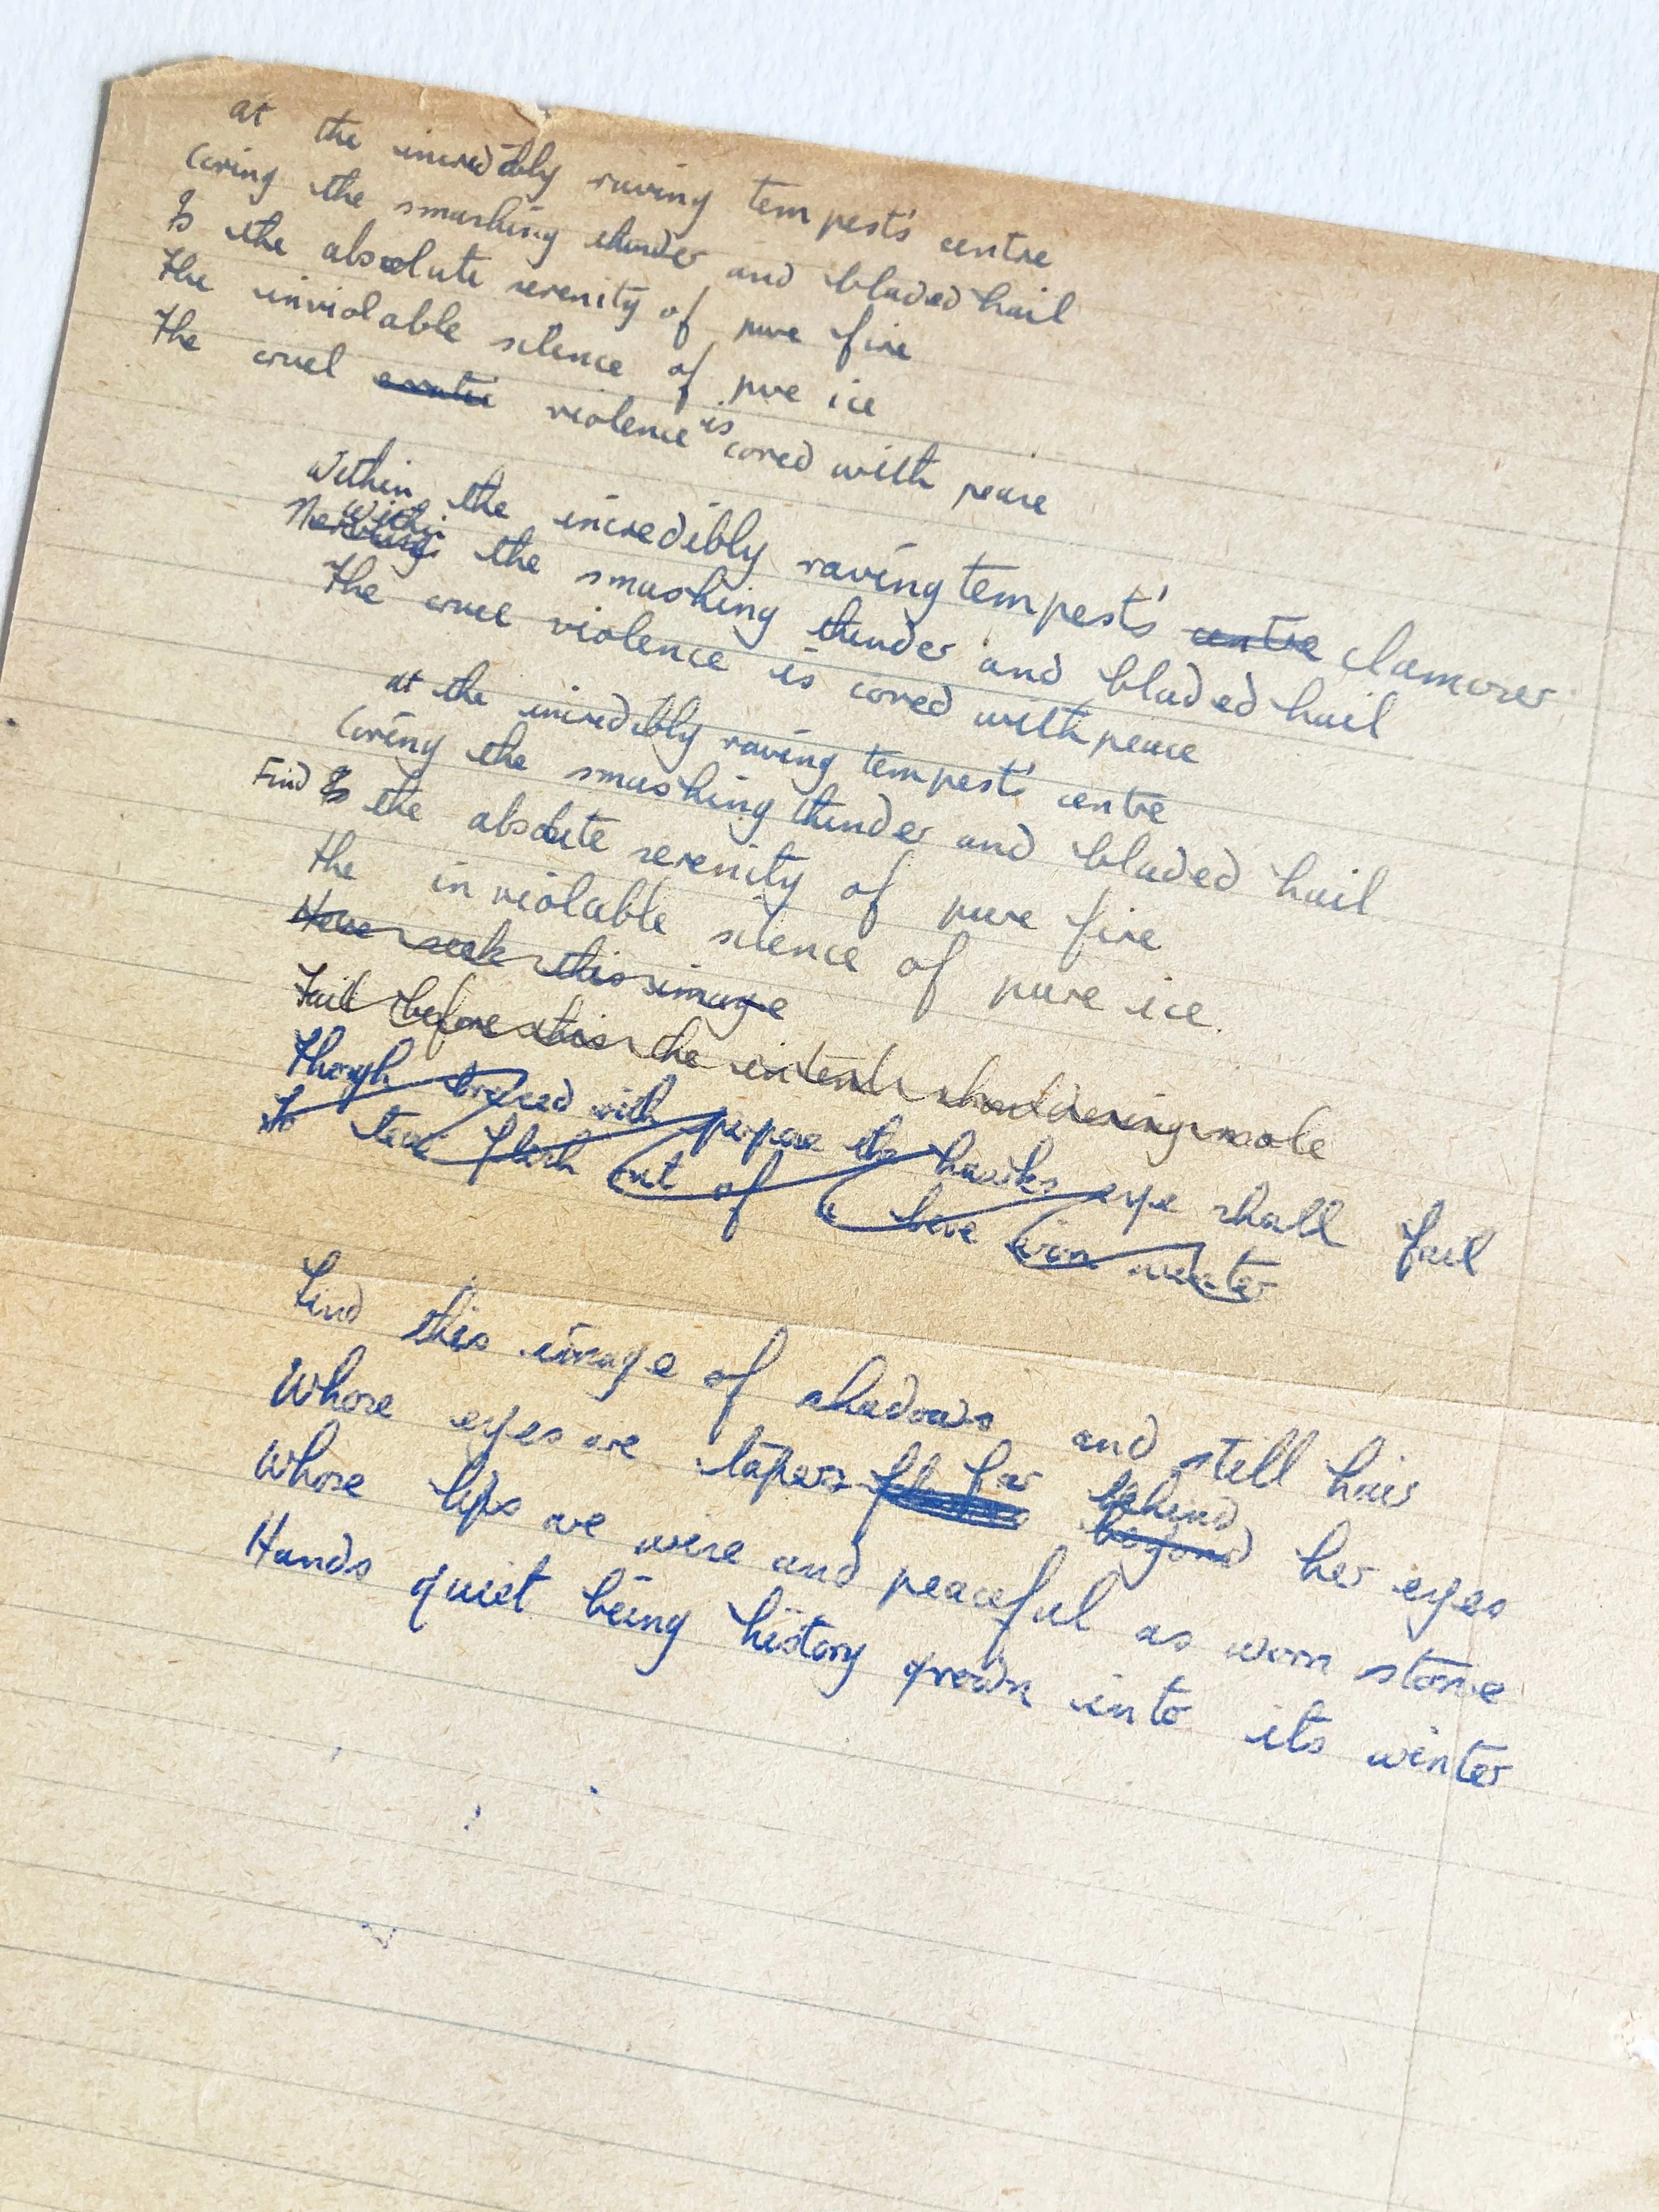 at the incredibly raving tempest's centre
Coring the smashing thunder and bladed hail
Is the absolute serenity of pure fire
The inviolable silence of pure ice
The cruel violence is cored with peace
Within the incredibly raving tempest's centre clamour
Within the smashing thunder and bladed hail
The cruel violence is cored with peace
at the incredibly raving tempest's centre
Coring the smashing thunder and bladed hail
Find Is the absolute serenity of pure fire
The inviolable silence of pure ice.
Now seek this image
Fail before this the shouldering mole
Though braced with purpose the hawk's eye shall fail
To tear flesh out of a winter
Find this image of shadows and still hair
Whose eyes are tapers far behind beyond her eyes
Whose lips are wise and peaceful as worn stone
Hands quiet being history grown into its winter